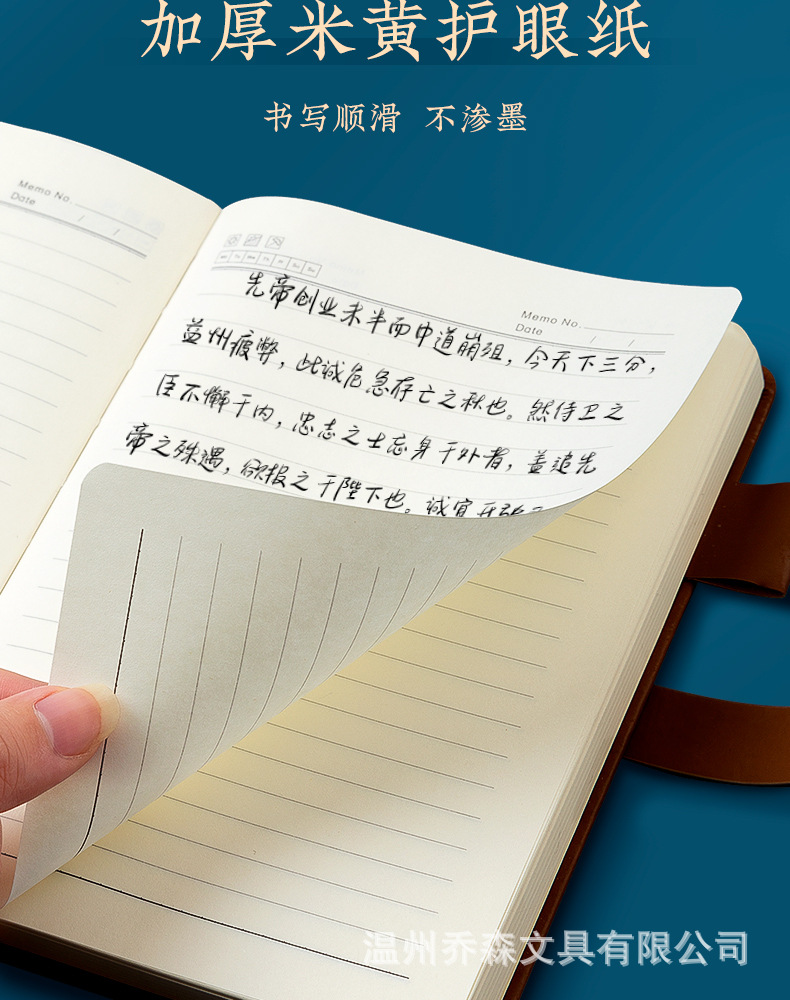 加厚米黄护眼纸
书写顺滑 不渗墨
Memo No.
Date / /
Mo Tu We Th Fr Sa Su
Memo No.
Date / /
先帝创业未半而中道崩殂，今天下三分，
益州疲弊，此诚危急存亡之秋也。然侍卫之
臣不懈于内，忠志之士忘身于外者，盖追先
帝之殊遇，欲报之于陛下也。诚宜开张
温州乔森文具有限公司